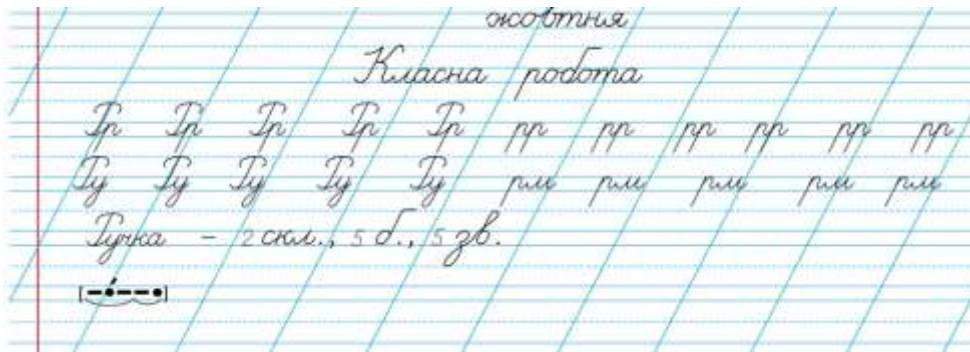 жовтня
Класна робота
Рр Рр Рр Рр Рр рр рр рр рр рр рр
Ру Ру Ру Ру Ру рм рм рм рм рм
Ручка - 2 скл., 5 б., 5 зв.